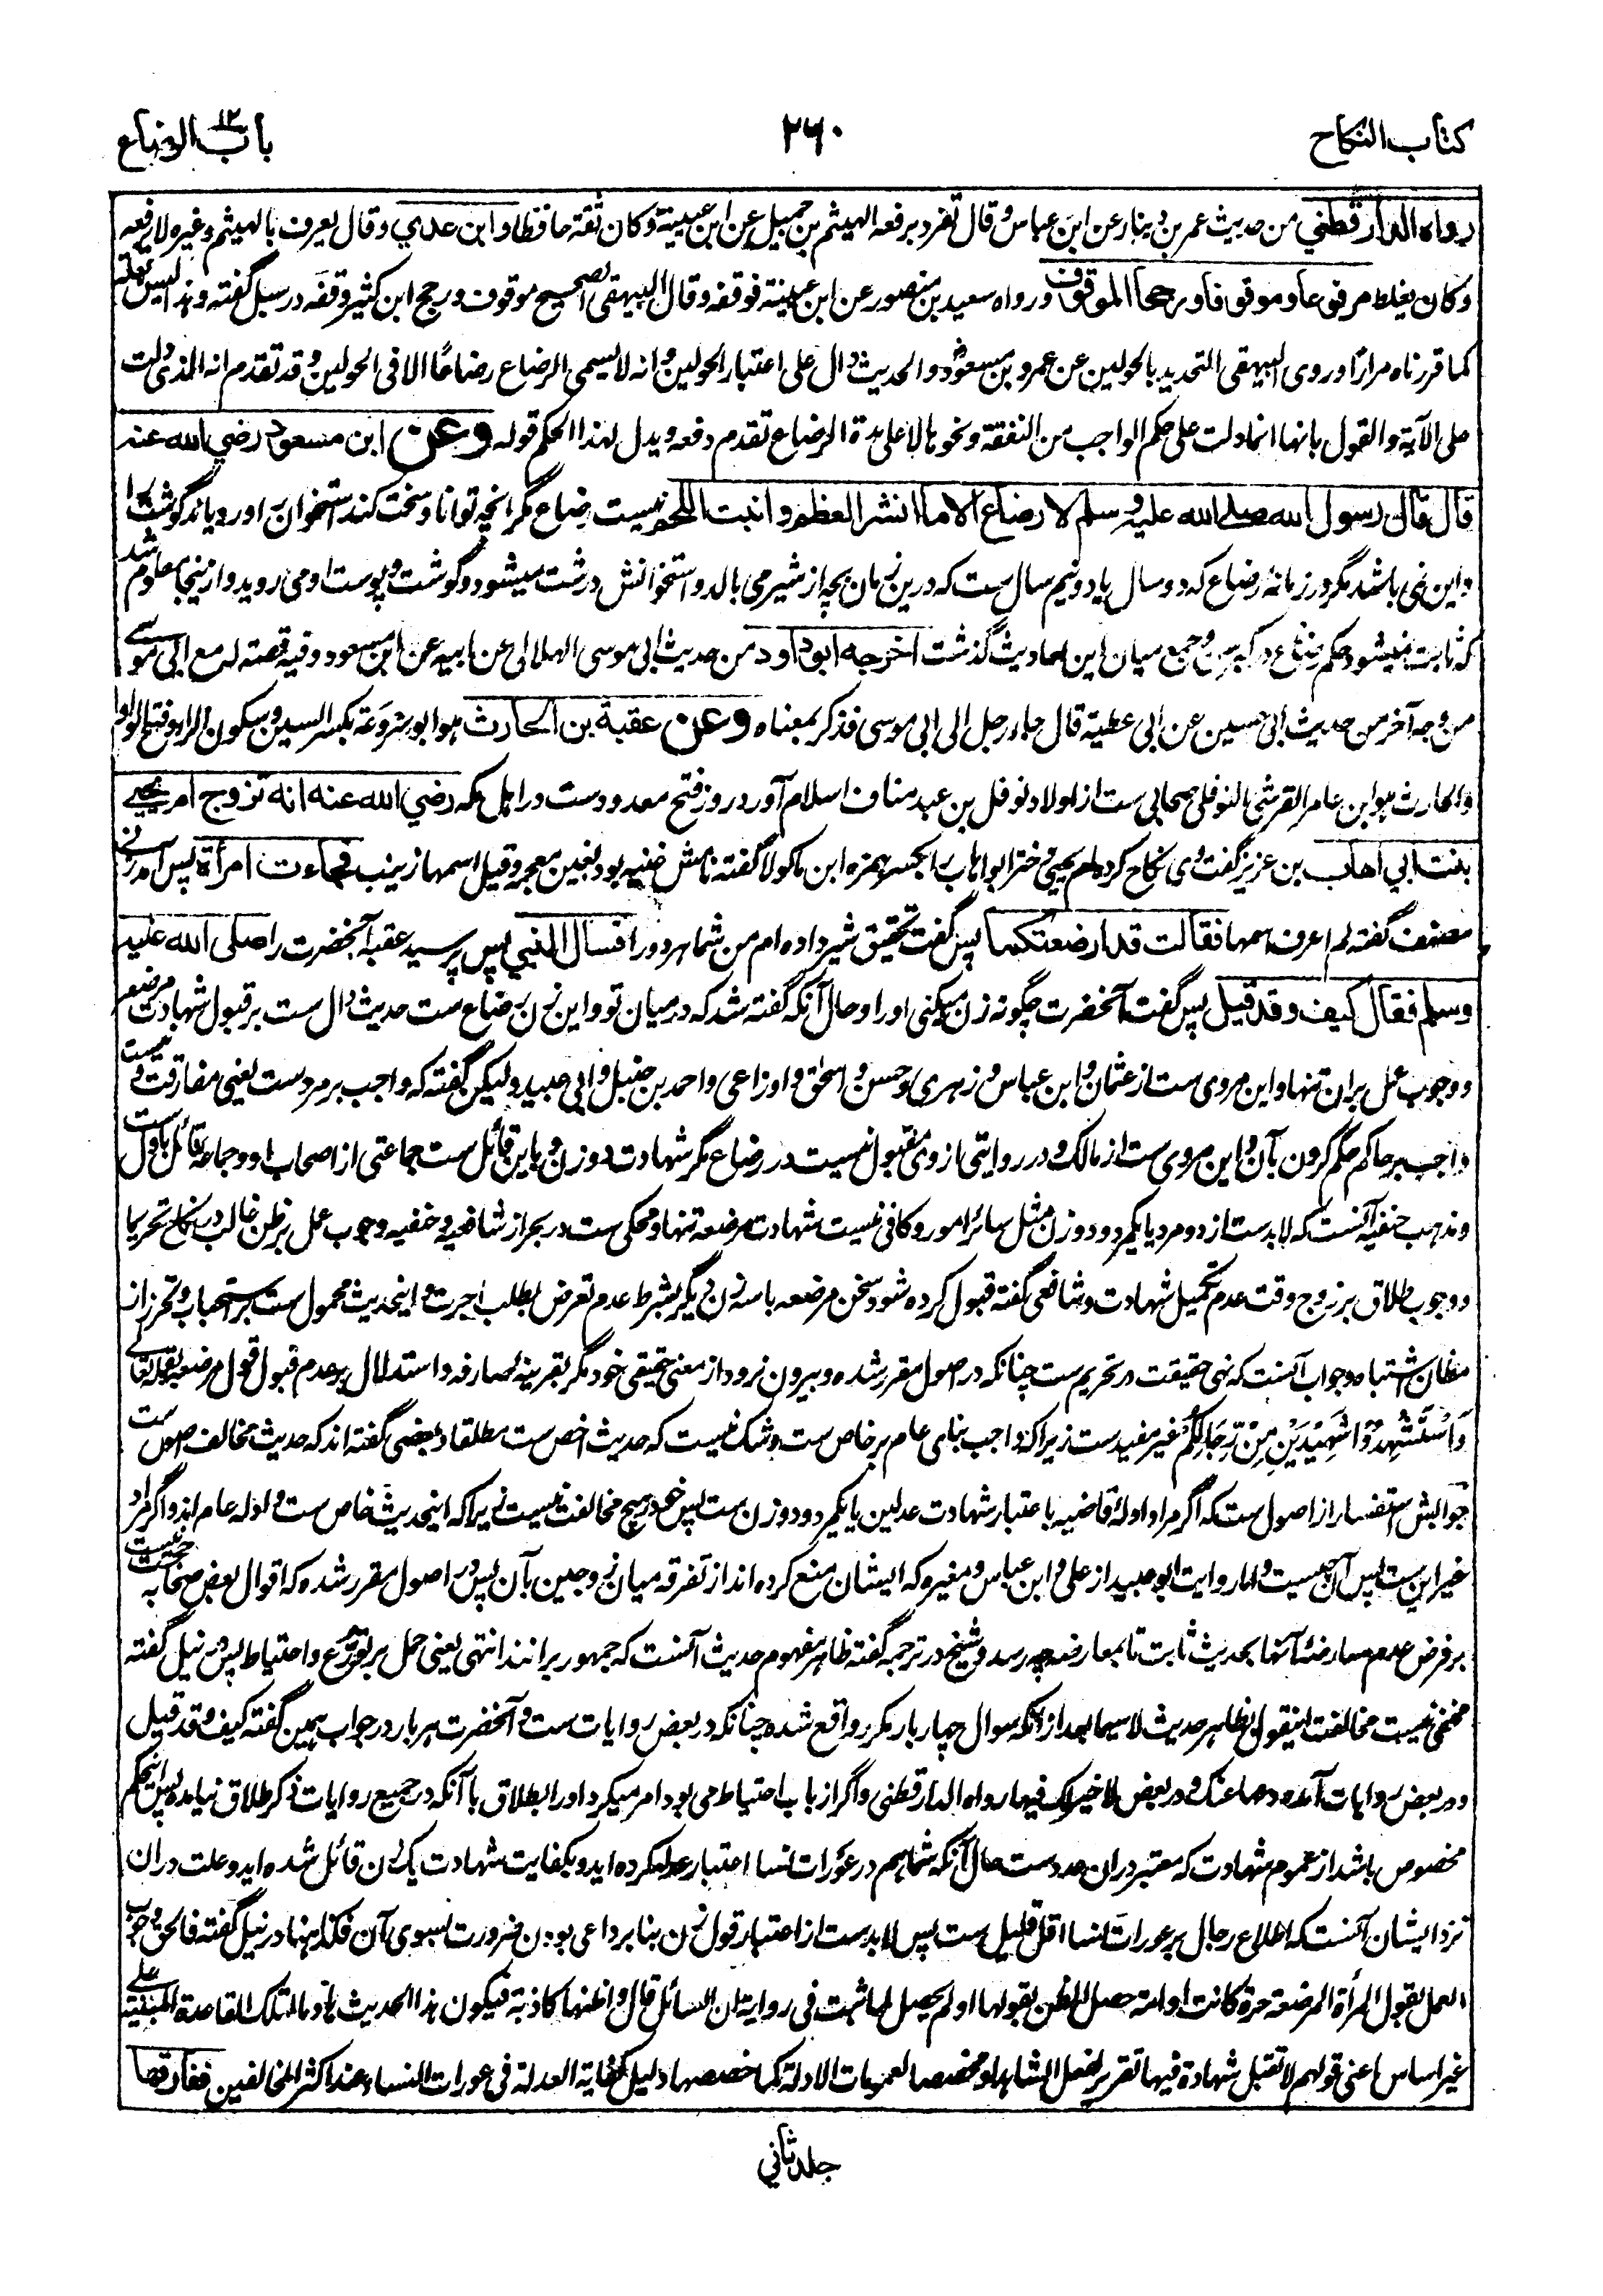 کتاب النکاح
۲۶۰
باب الرضاع
۱۲
رواه الدارقطني من حدیث عمر بن دینار عن ابن عباس وقال تفرد برفعه الهیثم بن جمیل عن ابن عیینة وکان ثقة حافظا وابن عدي وقال یعرف بالهیثم وغیره لا یرفعه
وکان یغلط مرفوعا وموقوفا ورجحا الموقوف ورواه سعید بن منصور عن ابن عیینة فوقفه وقال البیهقی الصحیح موقوف ورجح ابن کثیر وقفه در سبل گفته وهذا لیس بعلة
کما قررناه مرارًا وروی البیهقی التحدید بالحولین عن عمر وبن مسعود والحدیث دال علی اعتبار الحولین وانه لا یسمی الرضاع رضاعًا الا فی الحولین وقد تقدم انه الذی دلت
علی الآیة والقول بانها انما دلت علی حکم الواجب من النفقة ونحوها لا علی مدة الرضاع تقدم دفعه ویدل لهذا الحکم قوله وعن ابن مسعود رضي الله عنه
قال قال رسول الله صلے الله علیه وسلم لا رضاع الا ما انشز العظم وانبت اللحم نیست رضاع مگر آنچه توانا وسخت کند استخوان را ورویاند گوشت را
واین نمی باشد مگر در زمانهٔ رضاع که دو سال یا دو نیم سال ست که درین زمان بچه از شیر می بالد واستخوانش درشت میشود وگوشت وپوست او می روید وازینجا معلوم شد
که ثابت نمیشود حکم رضاع در کبر سن وجمع میان این احادیث گذشت اخرجه ابوداود من حدیث ابی موسی الهلالی عن ابیه عن ابن مسعود وفیه قصته له مع ابی موسے
من وجه آخر من حدیث ابی حسین عن ابی عطیة قال جاء رجل الی ابی موسی فذکر بمعناه وعن عقبة بن الحارث هو ابو سروعة بکسر السین وسکون الراء وفتح الواو
والحارث هو ابن عامر القرشی النوفلی صحابی ست از اولاد نوفل بن عبد مناف اسلام آورد روز فتح معدودست در اهل مکه رضي الله عنه انه تزوج ام یحیے
بنت ابي اهاب بن عزیز گفت وی نکاح کرده ام یحیی دختر ابو اهاب را بکسر همزه ابن ماکولا گفته نامش غنیه بود بغین معجمه وقیل اسمها زینب فجاءت امرأة پس آمد زنے
مصنف گفته لم اعرف اسمها فقالت قد ارضعتکما پس گفت تحقیق شیر داده ام من شما هر دو را فسال النبي پس پرسید عقبه آنحضرت را صلی الله علیه
وسلم فقال کیف وقد قیل پس گفت آنحضرت چگونه زن میکنی او را وحال آنکه گفته شد که درمیان تو واین زن رضاع ست حدیث دال ست بر قبول شهادت مرضعه
ووجوب عمل بران تنها واین مروی ست از عثمان وابن عباس وزهری وحسن واسحق واوزاعی واحمد بن حنبل وابی عبید ولیکن گفته که واجب بر مردست یعنی مفارقت ونیست
واجب بر حاکم حکم کردن بآن واین مروی ست از مالک ودر روایتی از وی مقبول نیست در رضاع مگر شهادت دو زن وباین قائل ست جماعتی از اصحاب او وجماعه قائل باول ست
ومذهب حنفیه آنست که لابدست از دو مرد یا یکمرد ودو زن مثل سائر امور وکافی نیست شهادت مرضعه تنها ومحکی ست در بحر از شافعیه وحنفیه وجوب عمل بر ظن غالب در نکاح تحریما
ووجوب طلاق بر زوج وقت عدم تکمیل شهادت وشافعی گفته قبول کرده شود سخن مرضعه با سه زن دیگر بشرط عدم تعرض بطلب اجرت واینحدیث محمول ست بر استحباب وتحرز از
مظان اشتباه وجواب آنست که نهی حقیقت در تحریم ست چنانکه در اصول مقرر شده وبیرون نرود از معنی حقیقی خود مگر بقرینهٔ صارفه واستدلال بر عدم قبول قول مرضعه بقوله تعالے
وَاسْتَشْهِدُوْا شَهِیْدَیْنِ مِنْ رِّجَالِکُمْ غیر مفیدست زیرا که واجب بنای عام بر خاص ست وشک نیست که حدیث اخص ست مطلقا وبعضی گفته اند که حدیث مخالف اصول ست
جوابش استفسار از اصول ست که اگر مراد ادلهٔ قاضیه باعتبار شهادت عدلین یا یکمرد ودو زن ست پس خود هیچ مخالفت نیست زیرا که اینحدیث خاص ست وادله عام اند واگر مراد
غیر این ست پس آن چیست واما روایت ابو عبید از علی وابن عباس ومغیره که ایشان منع کرده اند از تفرقه میان زوجین بآن پس در اصول مقرر شده که اقوال بعض صحابه حجت نیست
بر فرض عدم معارضهٔ آنها بحدیث ثابت تا بمعارضه چه رسد وشیخ در ترجمه گفته ظاهر مفهوم حدیث آنست که جمهور برانند انتهی یعنی حمل بر تورع واحتیاط پس در نیل گفته
مخفی نیست مخالفت اینقول بظاهر حدیث لاسیما بعد از آنکه سوال چهار بار مکرر واقع شده چنانکه در بعض روایات ست وآنحضرت هر بار در جواب همین گفته کیف وقد قیل
ودر بعض روایات آمده دعها عنک ودر بعض لا خیر لک فیها رواه الدارقطنی واگر از باب احتیاط می بود امر میکرد او را بطلاق با آنکه در جمیع روایات ذکر طلاق نیامده پس اینحکم
مخصوص باشد از عموم شهادت که معتبر دران عددست حال آنکه شما هم در عورات نسا اعتبار عدد نکرده اید وبکفایت شهادت یک زن قائل شده اید وعلت دران
نزد ایشان آنست که اطلاع رجال بر عورات نسا اقل قلیل ست پس لابدست از اعتبار قول زن بنا بر داعی بودن ضرورت بسوی آن فکذا هنا در نیل گفته فالحق وجوب
العمل بقول المرأة المرضعة حرة کانت او امة حصل الظن بقولها او لم یحصل لما ثبت فی روایة ان السائل قال واظنها کاذبة فیکون هذا الحدیث هادما لتلک القاعدة المبنیة علی
غیر اساس اعنی قولهم لا تقبل شهادة فیها تقریر لفعل الشاهد ومخصصا لعمومات الادلة کما خصصها دلیل کفایة العدلة فی عورات النساء عند اکثر المخالفین ففارقها
جلد ثاني